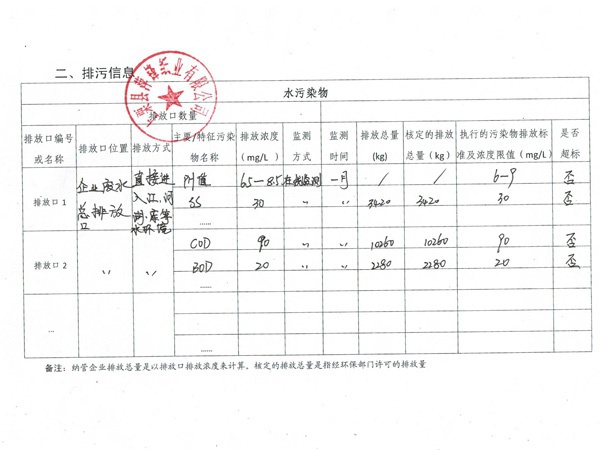 二、排污信息
水污染物
排放口数量
排放口编号或名称 排放口位置 排放方式 主要/特征污染物名称 排放浓度（mg/L） 监测方式 监测时间 排放总量(kg) 核定的排放总量（kg） 执行的污染物排放标准及浓度限值（mg/L） 是否超标
排放口 1 企业废水总排放口 直接进入江、河、湖、库等水环境 PH值 6.5—8.5 在线监测 一月 / / 6—9 否
SS 30 〃 〃 3420 3420 30 否
……
排放口 2 〃 〃 COD 90 〃 〃 10260 10260 90 否
BOD 20 〃 〃 2280 2280 20 否
……
...
……
备注：纳管企业排放总量是以排放口排放浓度来计算。核定的排放总量是指经环保部门许可的排放量
业有限公司